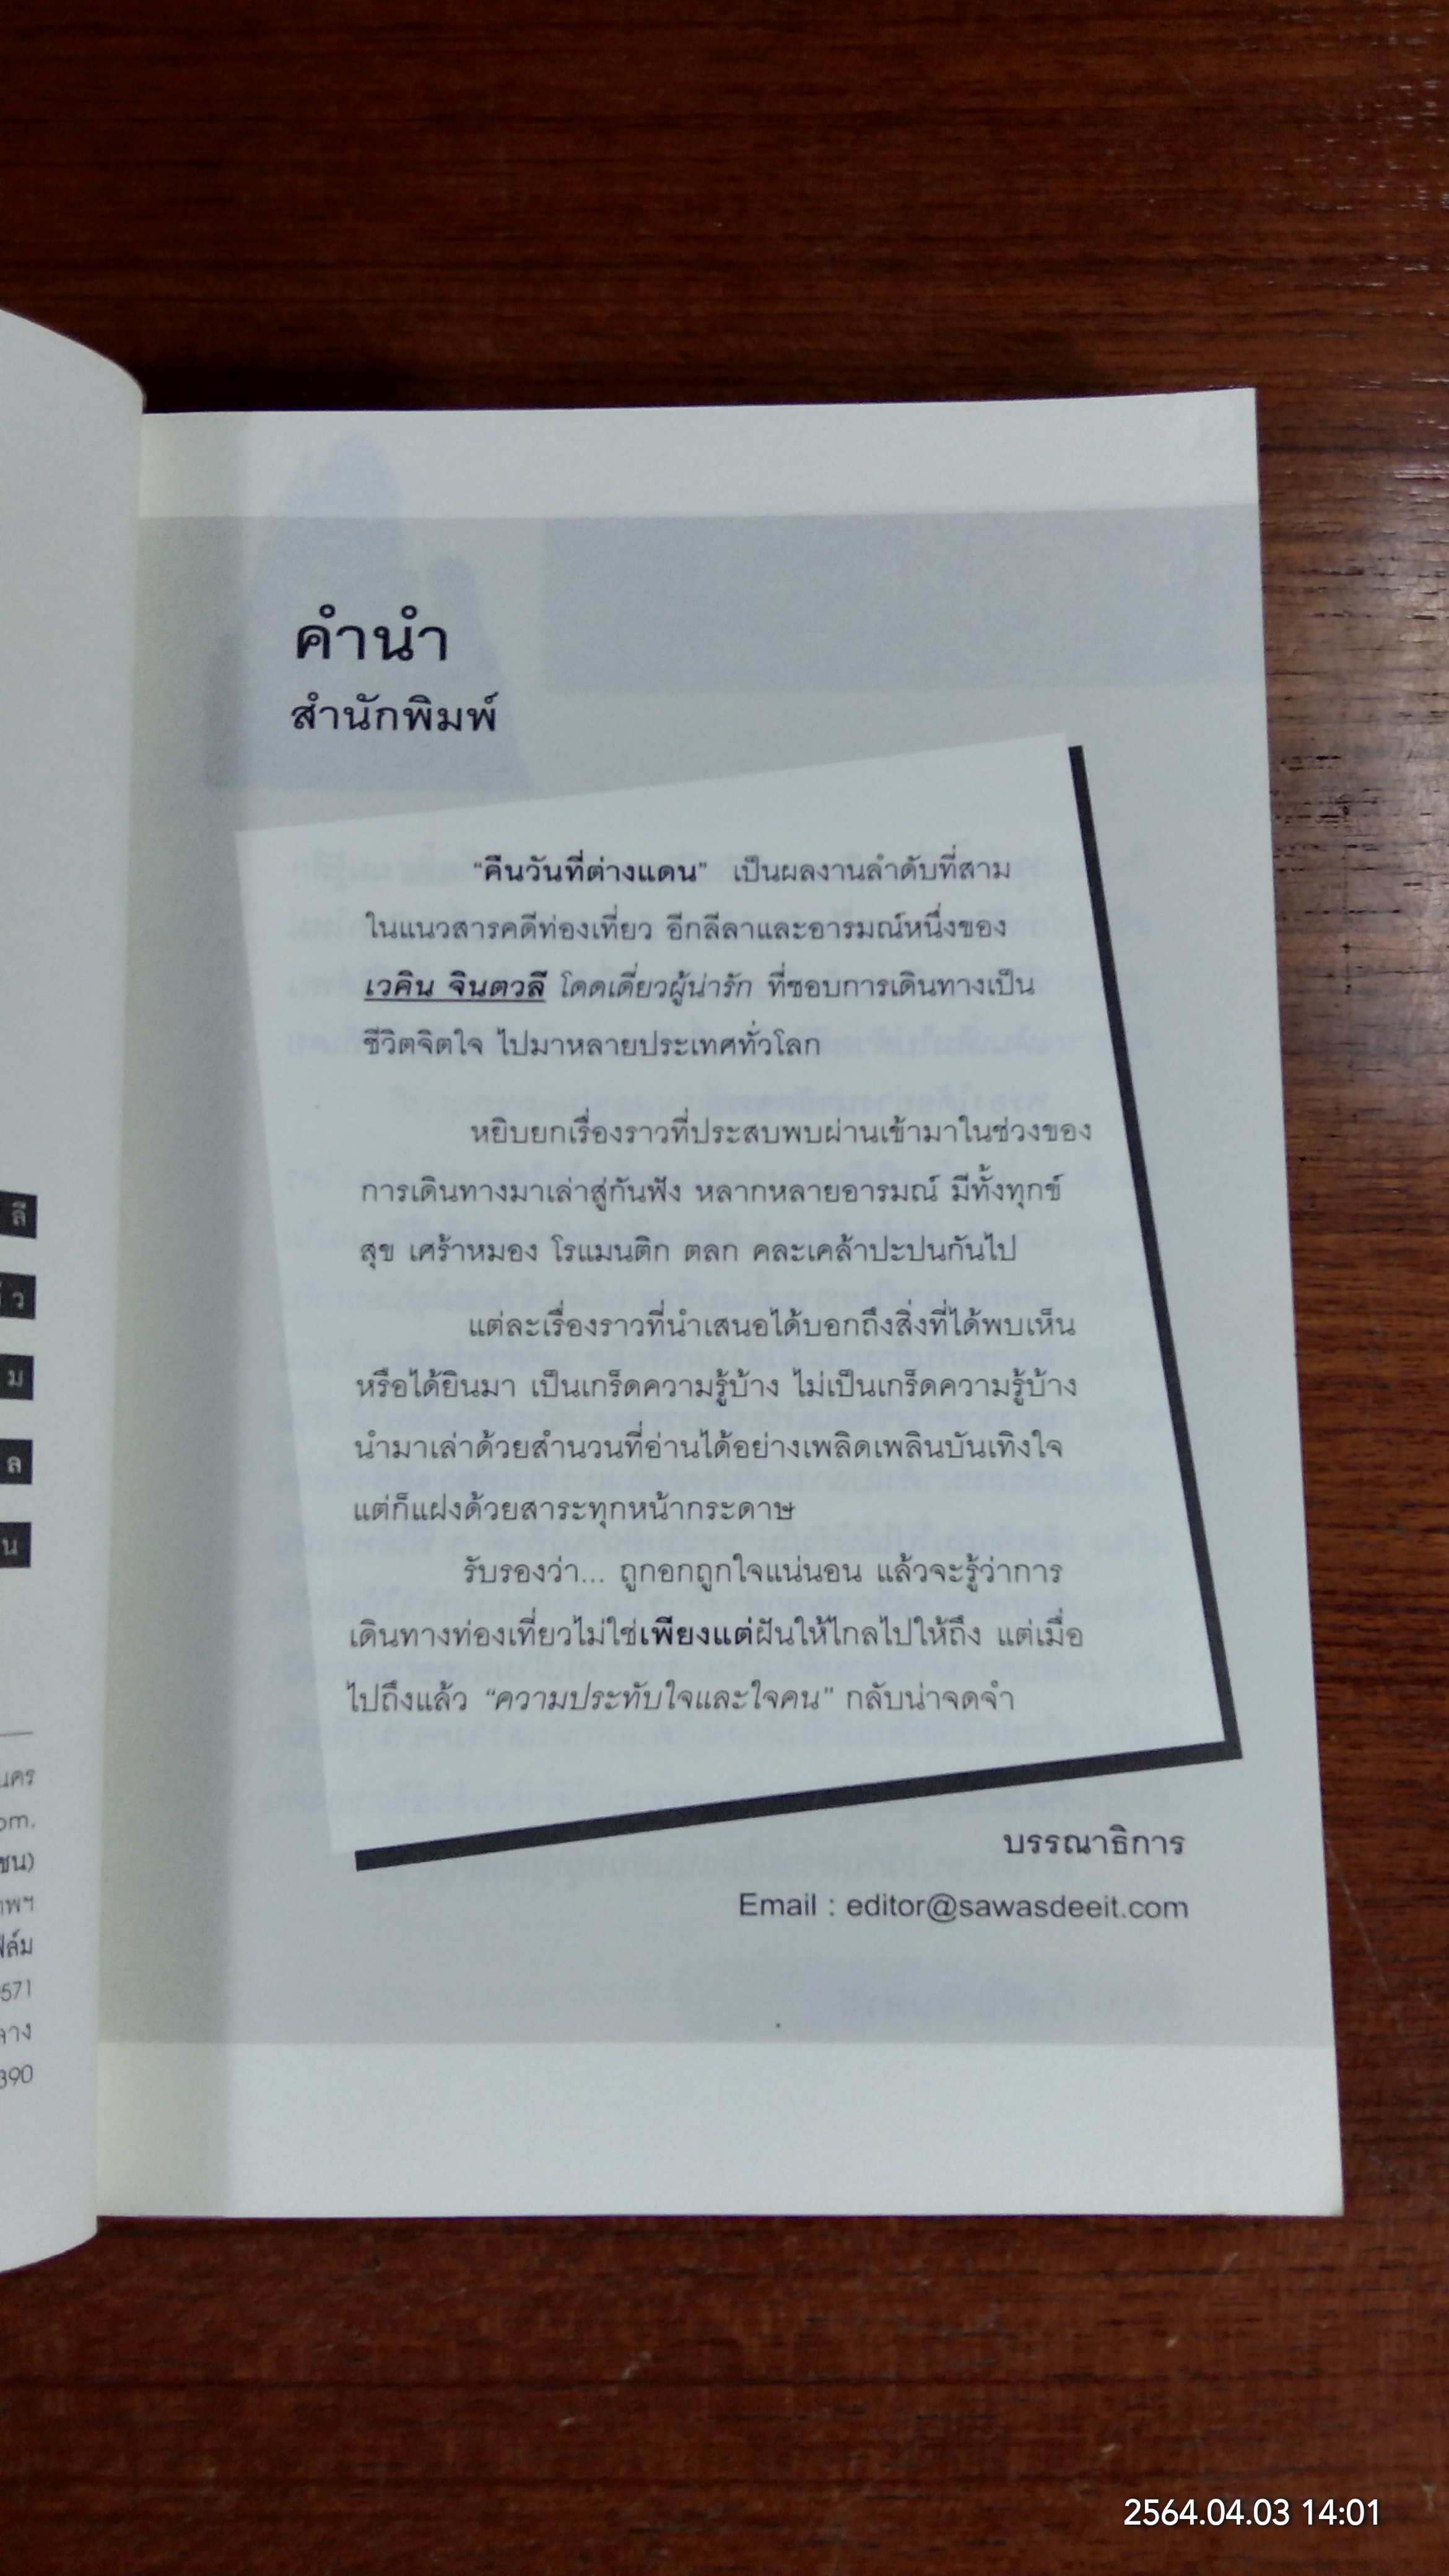 คำนำ
สำนักพิมพ์
"คืนวันที่ต่างแดน" เป็นผลงานลำดับที่สาม
ในแนวสารคดีท่องเที่ยว อีกลีลาและอารมณ์หนึ่งของ
เวคิน จินตวลี โดดเดี่ยวผู้น่ารัก ที่ชอบการเดินทางเป็น
ชีวิตจิตใจ ไปมาหลายประเทศทั่วโลก
หยิบยกเรื่องราวที่ประสบพบผ่านเข้ามาในช่วงของ
การเดินทางมาเล่าสู่กันฟัง หลากหลายอารมณ์ มีทั้งทุกข์
สุข เศร้าหมอง โรแมนติก ตลก คละเคล้าปะปนกันไป
แต่ละเรื่องราวที่นำเสนอได้บอกถึงสิ่งที่ได้พบเห็น
หรือได้ยินมา เป็นเกร็ดความรู้บ้าง ไม่เป็นเกร็ดความรู้บ้าง
นำมาเล่าด้วยสำนวนที่อ่านได้อย่างเพลิดเพลินบันเทิงใจ
แต่ก็แฝงด้วยสาระทุกหน้ากระดาษ
รับรองว่า... ถูกอกถูกใจแน่นอน แล้วจะรู้ว่าการ
เดินทางท่องเที่ยวไม่ใช่เพียงแต่ฝันให้ไกลไปให้ถึง แต่เมื่อ
ไปถึงแล้ว "ความประทับใจและใจคน" กลับน่าจดจำ
บรรณาธิการ
Email : editor@sawasdeeit.com
ลี
ว
ม
ล
น
571
390
2564.04.03 14:01